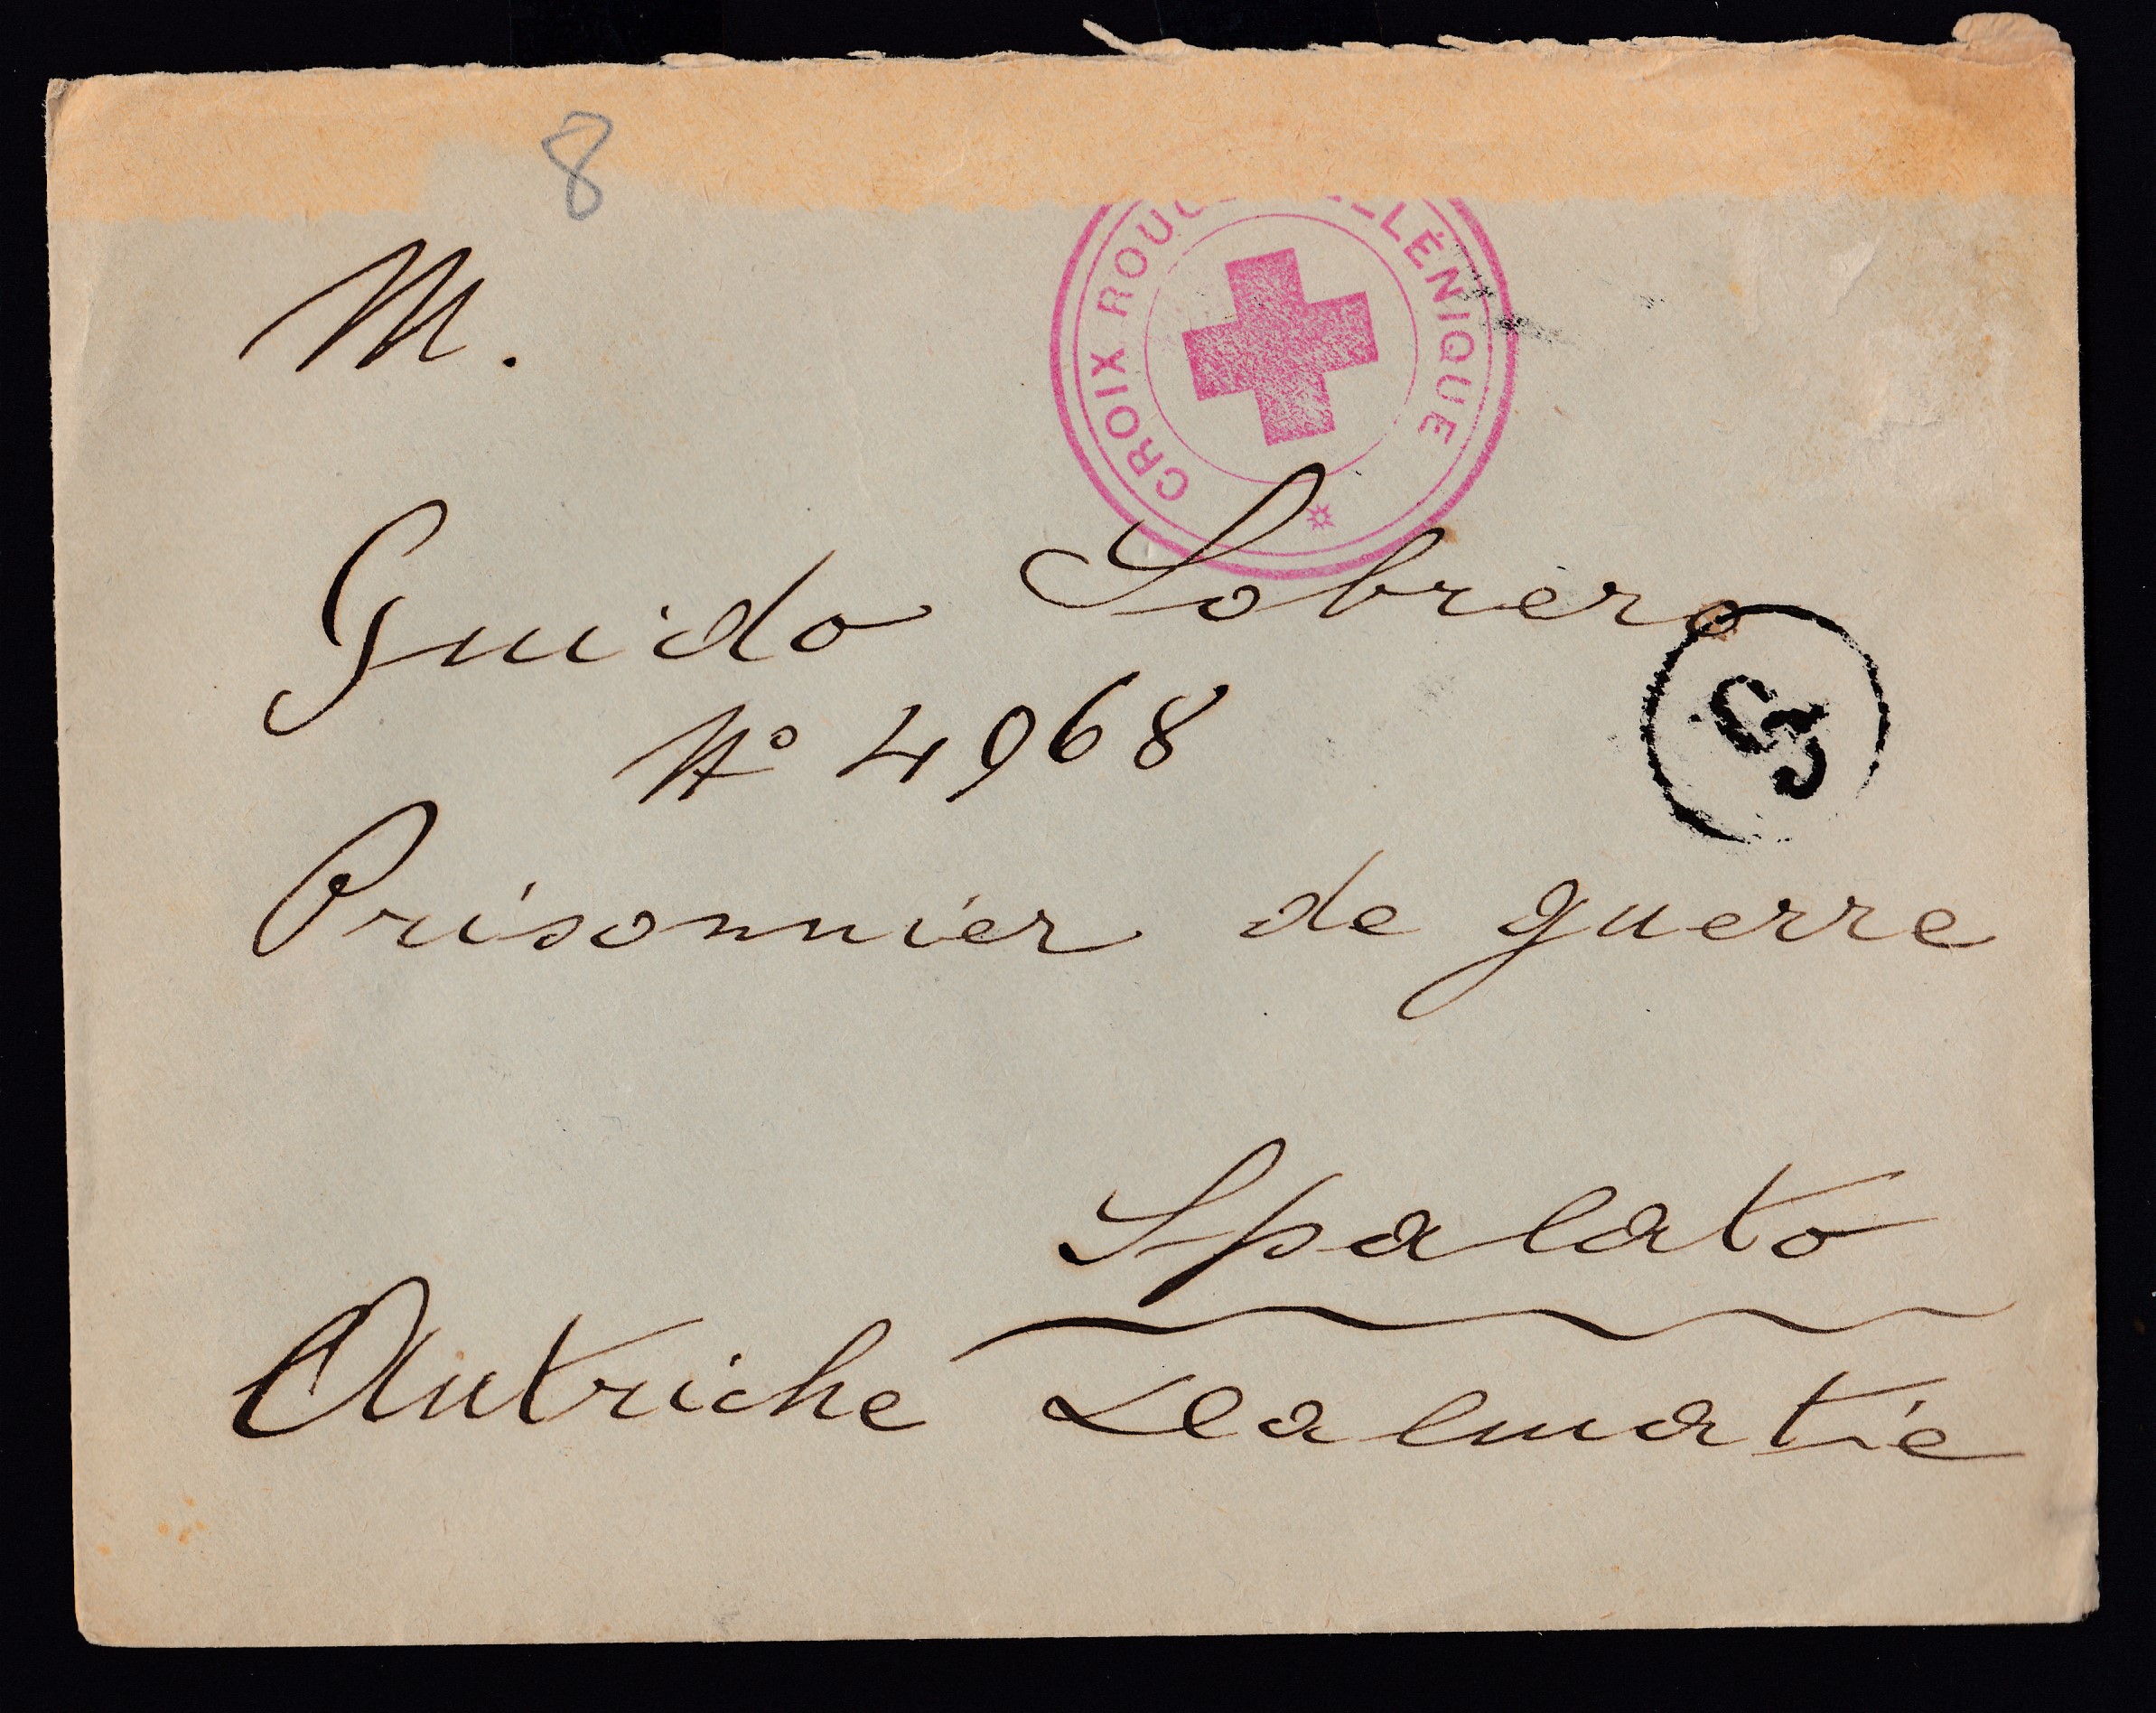 8
M.
CROIX ROUGE HELLÉNIQUE
Guido Sobrero
Nº 4968
Prisonnier de guerre
Spalato
Autriche Dalmatie